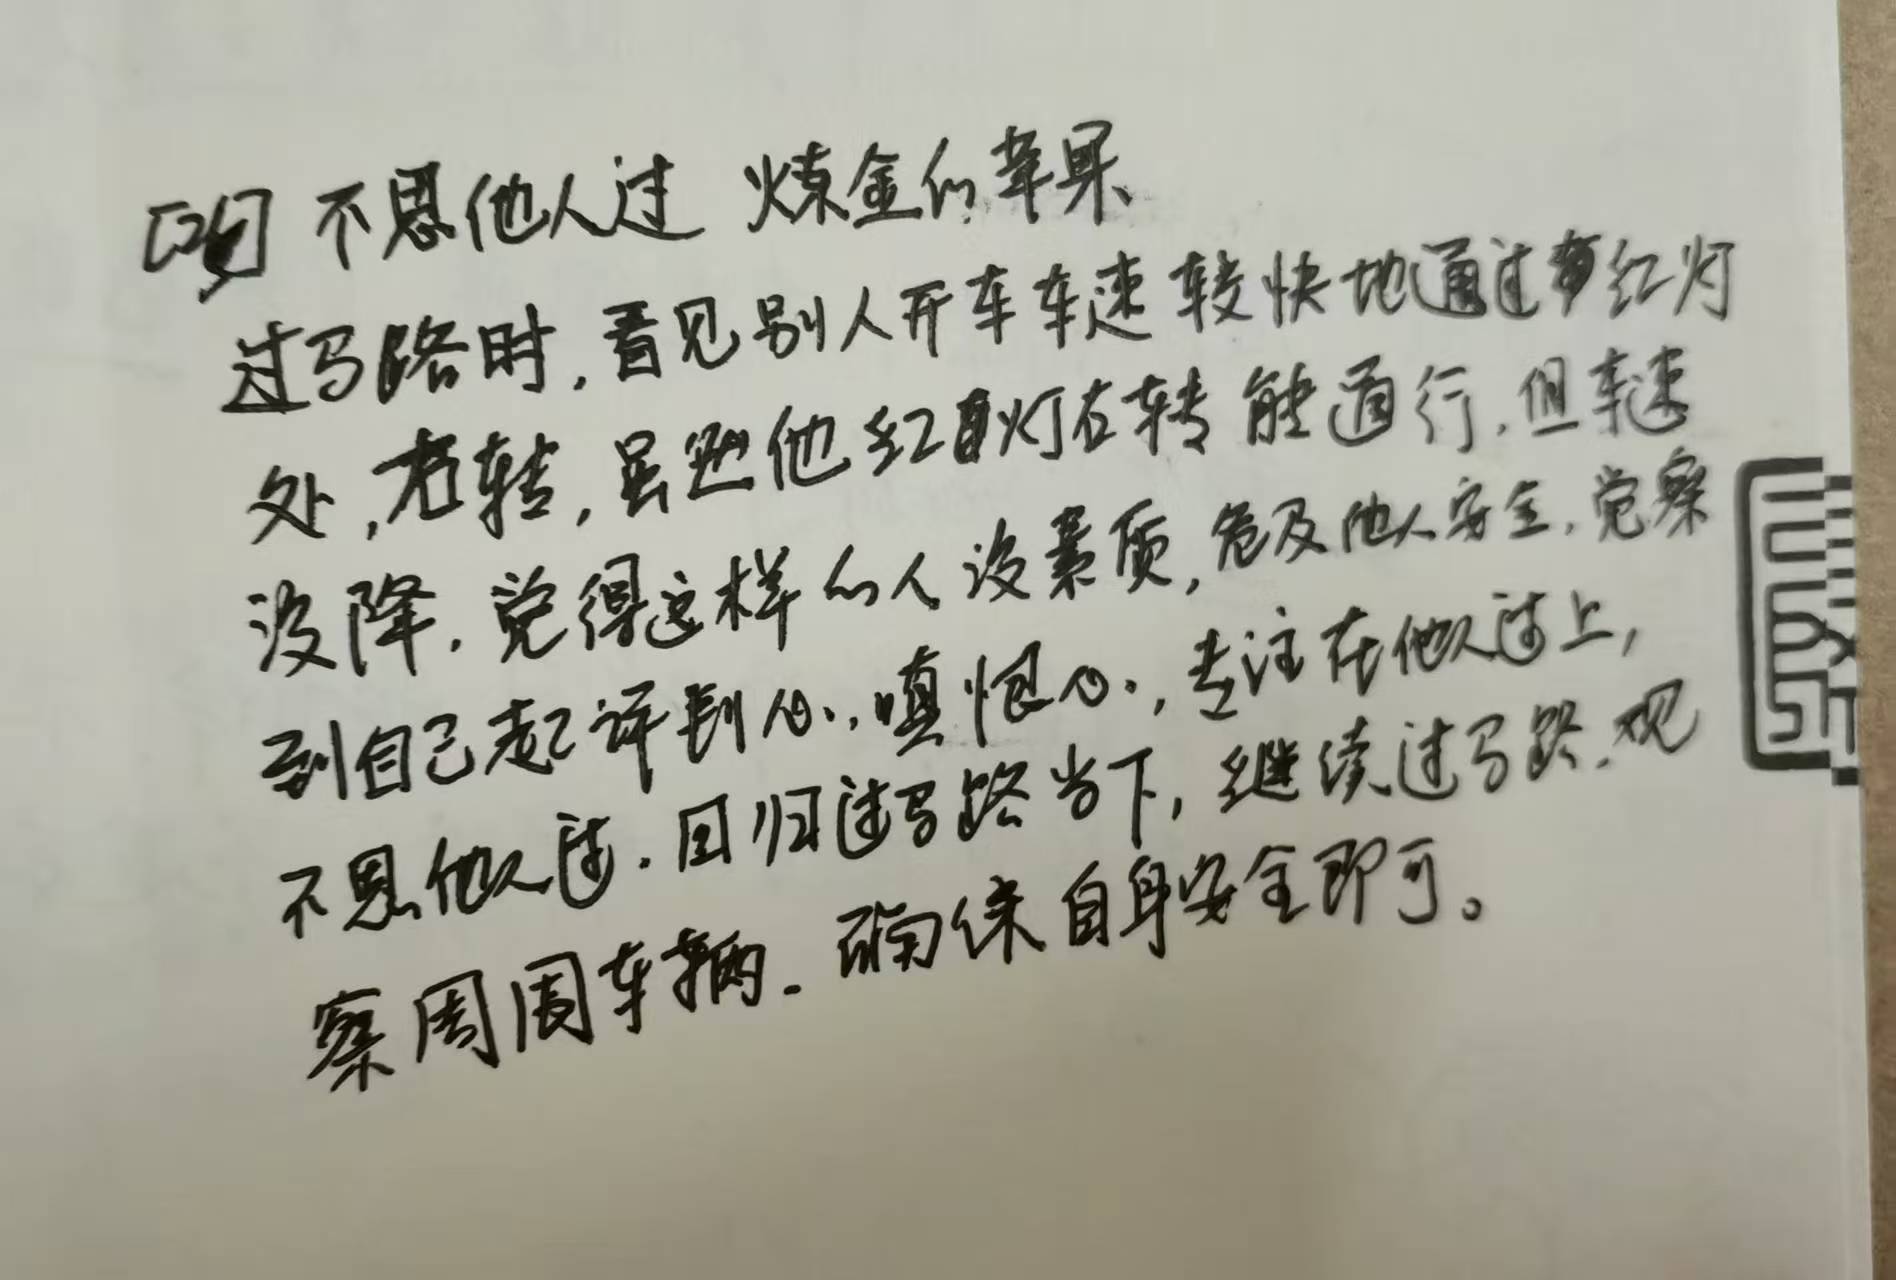 不思他人过 炼金的苹果
过马路时,看见别人开车车速较快地通过红灯
处,右转,虽然他红灯右转能通行,但车速
没降,觉得这样的人没素质,危及他人安全,觉察
到自己起评判心,嗔恨心,专注在他人过上,
不思他人过,回归过马路当下,继续过马路,观
察周围车辆,确保自身安全即可。